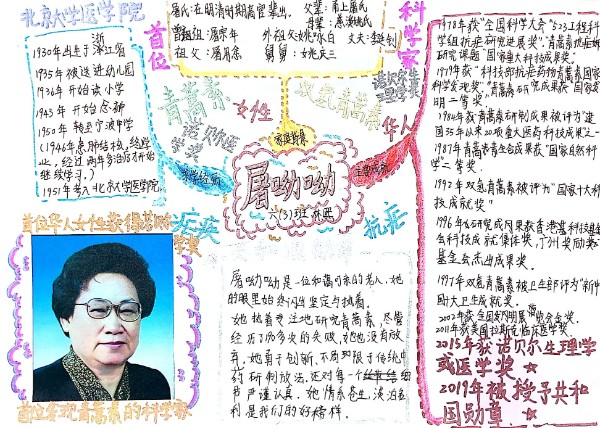 北京大学医学院
1930年出生于浙江省
1935年被送进幼儿园
1936年开始读小学
1943年开始念初中
1950年转至宁波中学
(1946年患肺结核,终学
业,经过两年多治疗才开始
继续学习。)
1951年考入北京大学医学院
首位
屠氏在明清时期高官辈出
父辈:甫上屠氏
祖父:屠
外祖父:姚咏白
丈夫:李廷钊
家庭背景
科学家
青蒿素
诺贝尔医
学奖
女性
双氢青蒿素
华人
屠呦呦
六(3)班
疟疾
抗疟
首位华人女性获得诺
首位发现青蒿素的科学家
屠呦呦是一位和蔼可亲的老人,她
的眼里始终闪烁坚定与执着。
她执着专注地研究青蒿素,尽管
经历了历多次的失败,她也没有放
弃。她勇于创新,不局限于传统中
药研制放法。还对每个细
节严谨认真。她情系苍生,淡泊名
利是我们的好榜样。
1978年获"全国科学大会"523工程科
学组抗疟研究进展奖".青蒿素抗疟
研究课题"国家重大科技成果奖".
1979年获"科技部抗疟药物青蒿素国家
科学发现奖""青蒿素研究成果获"国家发
明二等奖"
1984年获青蒿素研制成果被评为"建
国35年以来20项重大医药科技成果之一
1987年青蒿素青生合成果获"国家自然科
学"一等奖。
1992年双氢青蒿素被评为"国家十大科
技成就奖"
1996年
会科技成就集体奖。
基金会杰出成果奖
1997年双氢青蒿素被卫生部评为"新中
十大卫生成就奖。
2011年获美国拉斯克临床医学奖
2015年获诺贝尔生理学
或医学奖
2019年被授予共和
国勋章